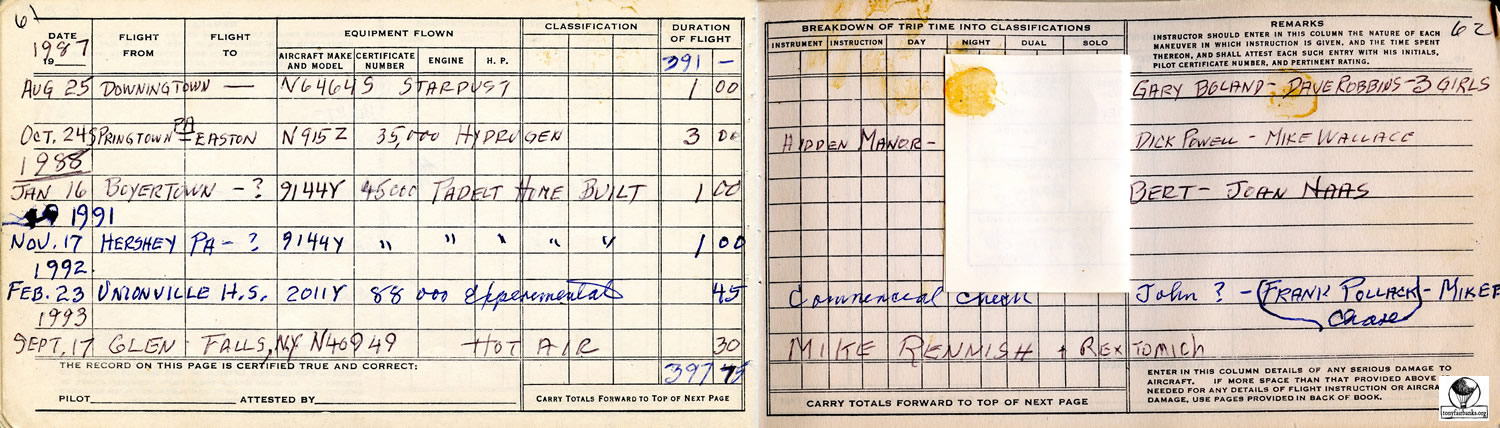 61
DATE
1987
19
FLIGHT FROM
FLIGHT TO
EQUIPMENT FLOWN
AIRCRAFT MAKE AND MODEL
CERTIFICATE NUMBER
ENGINE
H. P.
CLASSIFICATION
DURATION OF FLIGHT
391 —
AUG 25 DOWNINGTOWN — N6464S STARDUST 1 00
OCT. 24 SPRINGTOWN PA – EASTON N915Z 35,000 HYDRUGEN 3 00
1988
JAN 16 BOYERTOWN – ? 9144Y 45000 PADELT HOME BUILT 1 00
1991
NOV. 17 HERSHEY PA – ? 9144Y " " " " " 1 00
1992
FEB. 23 UNIONVILLE H.S. 2011Y 88 000 Experemental 45
1993
SEPT, 17 GLEN FALLS, NY N46949 HOT AIR 30
THE RECORD ON THIS PAGE IS CERTIFIED TRUE AND CORRECT:
397 75
PILOT ATTESTED BY
CARRY TOTALS FORWARD TO TOP OF NEXT PAGE
62
BREAKDOWN OF TRIP TIME INTO CLASSIFICATIONS
INSTRUMENT INSTRUCTION DAY NIGHT DUAL SOLO
REMARKS
INSTRUCTOR SHOULD ENTER IN THIS COLUMN THE NATURE OF EACH
MANEUVER IN WHICH INSTRUCTION IS GIVEN, AND THE TIME SPENT
THEREON, AND SHALL ATTEST EACH SUCH ENTRY WITH HIS INITIALS,
PILOT CERTIFICATE NUMBER, AND PERTINENT RATING.
GARY BOLAND – DAVE ROBBINS – 3 GIRLS
HIDDEN MANOR – DICK POWELL – MIKE WALLACE
BERT – JOAN NAAS
Commencial Check John ? – (FRANK POLLACK) – MIKE F
Chase
MIKE RENMISH + REX TOMICH
ENTER IN THIS COLUMN DETAILS OF ANY SERIOUS DAMAGE TO
AIRCRAFT. IF MORE SPACE THAN THAT PROVIDED ABOVE
NEEDED FOR ANY DETAILS OF FLIGHT INSTRUCTION OR AIRCRA
DAMAGE, USE PAGES PROVIDED IN BACK OF BOOK.
CARRY TOTALS FORWARD TO TOP OF NEXT PAGE
tonyfairbanks.org